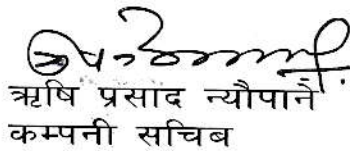 ऋषि प्रसाद न्यौपाने
कम्पनी सचिब